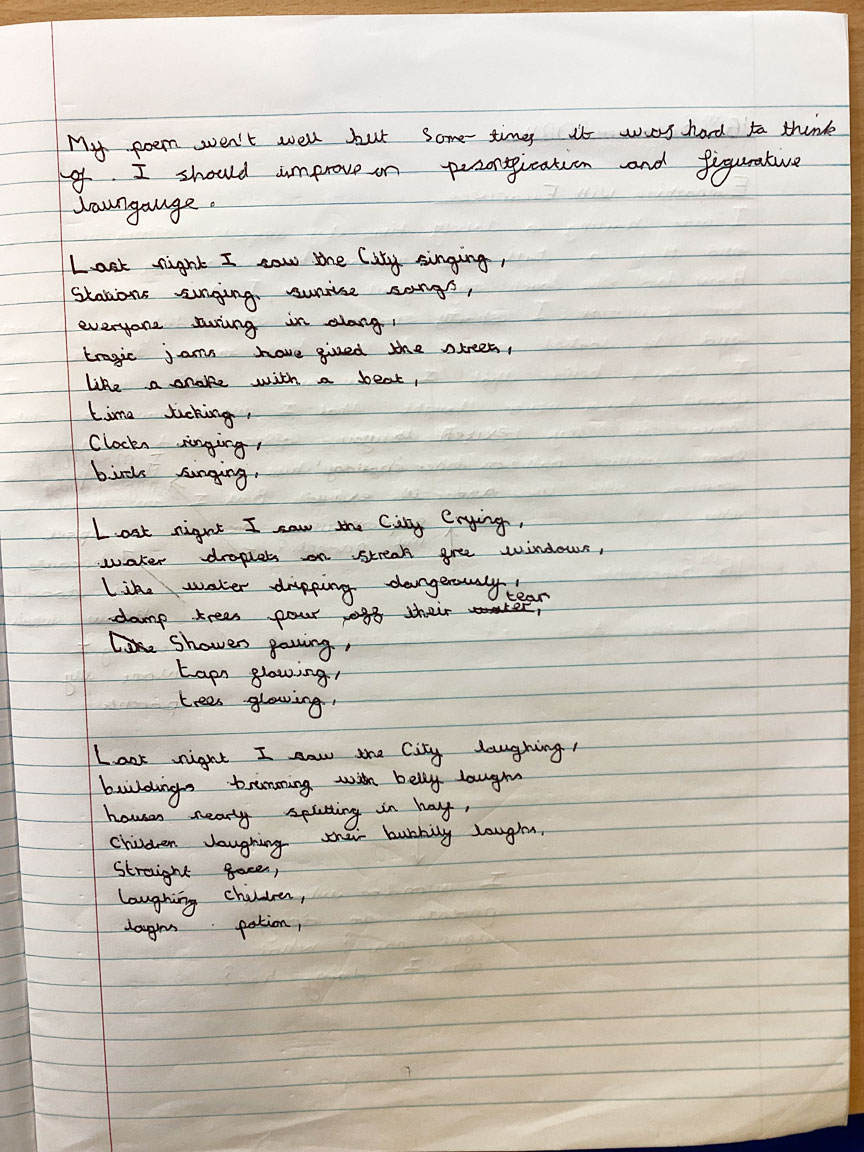 My poem wen't well but Some times it was hard to think
of. I should improve on pesonification and figurative
laungauge.
Last night I saw the City singing,
Stations singing sunrise songs,
everyone tuning in along,
trafic jams have filled the streets,
like a snake with a beat,
time ticking,
Clocks ringing,
birds singing,
Last night I saw the City Crying,
water droplets on streak free windows,
Like water dripping dangerously,
damp trees pour off their water, tear
Like Showers falling,
taps flowing,
trees glowing,
Last night I saw the City laughing,
buildings brimming with belly laughs
houses nearly splitting in half,
Children laughing their bubbily laughs,
Straight faces,
laughing Children,
laghs potion,